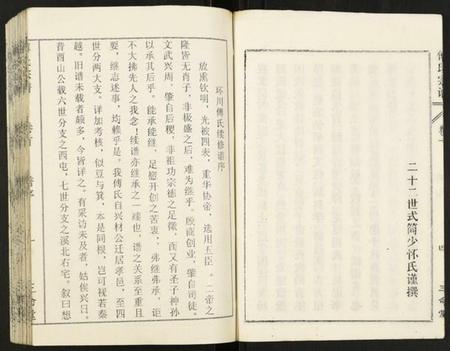 二十二世式简少怀氏谨撰
环川傅氏续修谱序
放熏钦明，光被四表，重华协帝，选用五臣。二帝之
隆皆无肖子，非极盛之后，难为继乎。殷商创业，肇自司徒。
文武兴周，肇自后稷，非祖功宗德之足徵，而又有圣子神孙
以承其后乎。能承能继，足慰开创之苦衷，弗继弗承，讵
不大拂先人之我念！续谱亦继承之一端也，谱之关系至重且
要，继志述事，均赖乎是。我傅氏自兴材公迁居孝邑，至四
世分两大支。详加考核，似豆与箕，本是同根，岂可视若秦
越。旧谱未载者颇多，今皆详之。有采访未及者，姑俟兴日。
昔酉山公载六世分支之西屯，七世分支之溪北右宅。叙曰想